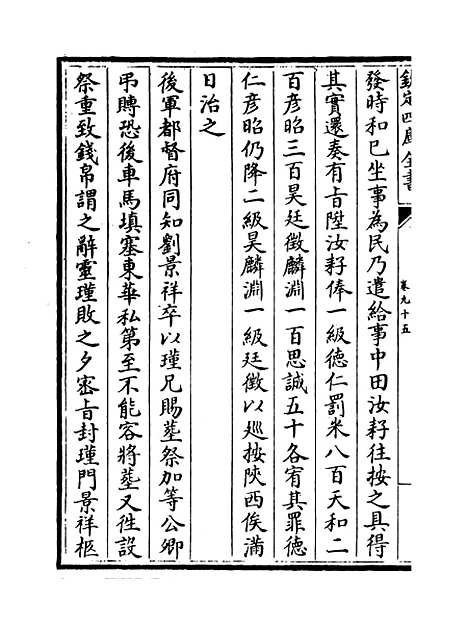 欽定四庫全書
卷九十五
發時和已坐事為民乃遣給事中田汝耔往按之具得
其實還奏有㫖陞汝耔俸一級德仁罰米八百天和二
百彦昭三百昊廷徵麟淵一百思誠五十各宥其罪德
仁彦昭仍降二級昊麟淵一級廷徵以廵按陜西俟滿
日治之
後軍都督府同知劉景祥卒以瑾兄賜葬祭加等公卿
弔賻恐後車馬填塞東華私第至不能容將葬又徃設
祭重致錢帛謂之辭靈瑾敗之夕宻㫖封瑾門景祥柩